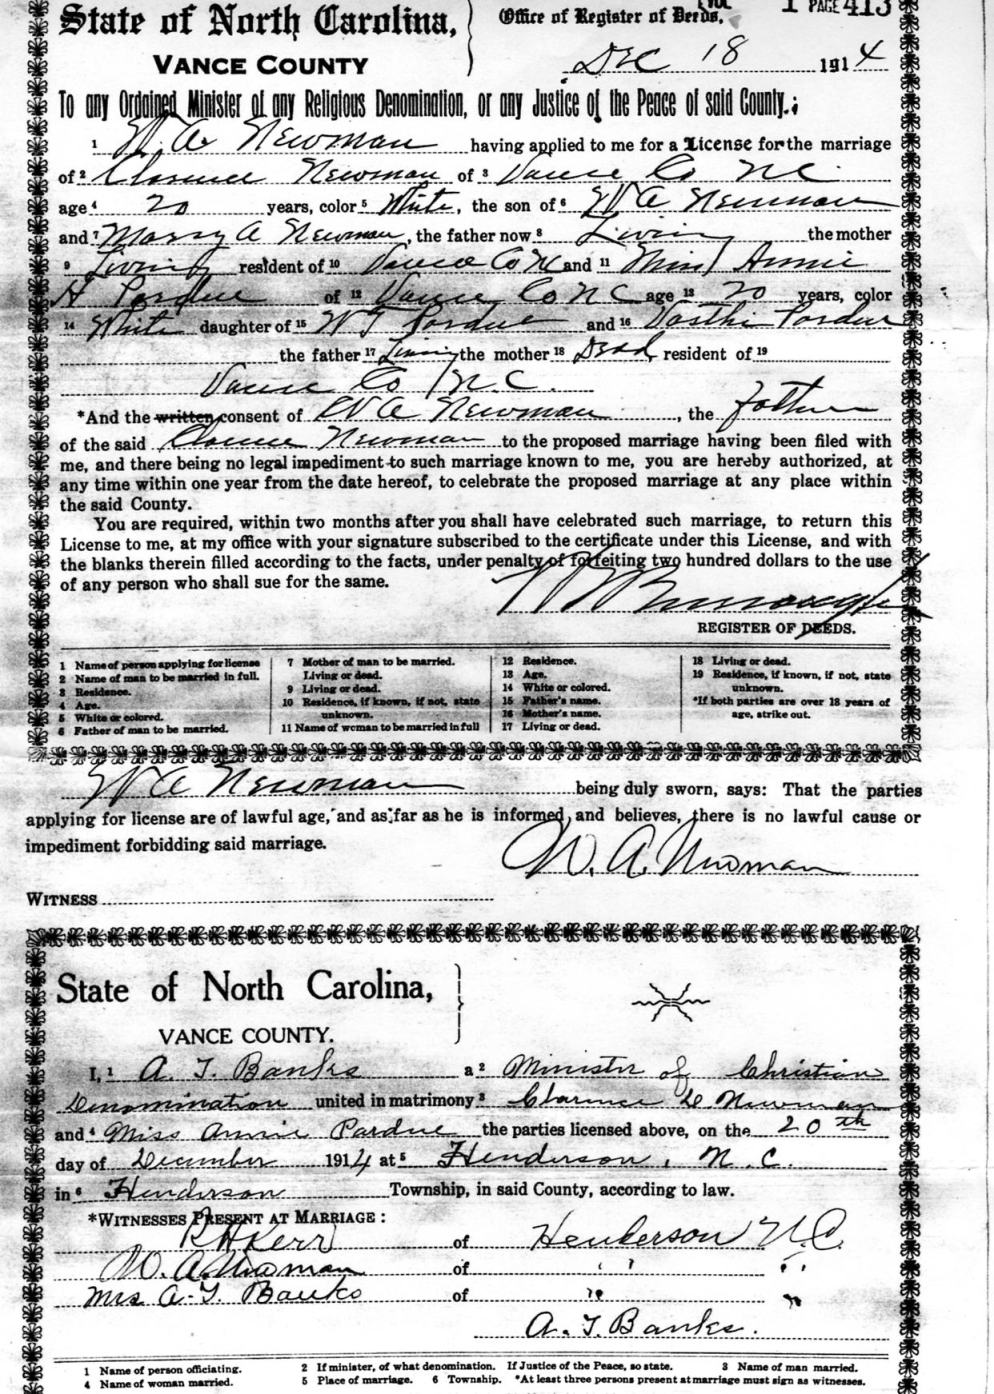 State of North Carolina, Office of Register of Deeds, PAGE 413
VANCE COUNTY Dec 18 1914
To any Ordained Minister of any Religious Denomination, or any Justice of the Peace of said County.:
1 W. A. Newman having applied to me for a License for the marriage
of 2 Clarence Newman of 3 Vance Co NC
age 4 20 years, color 5 White, the son of 6 W A Newman
and 7 Marry A Newman, the father now 8 Living the mother
9 Living resident of 10 Vance Co NC and 11 Miss Annie
H Pardue of 12 Vance Co NC age 13 20 years, color
14 White daughter of 15 W T Pardue and 16 Vasthi Pardue
the father 17 Living the mother 18 Dead resident of 19
Vance Co NC.
*And the written consent of W A Newman, the father
of the said Newman to the proposed marriage having been filed with
me, and there being no legal impediment to such marriage known to me, you are hereby authorized, at
any time within one year from the date hereof, to celebrate the proposed marriage at any place within
the said County.
You are required, within two months after you shall have celebrated such marriage, to return this
License to me, at my office with your signature subscribed to the certificate under this License, and with
the blanks therein filled according to the facts, under penalty of forfeiting two hundred dollars to the use
of any person who shall sue for the same.
REGISTER OF DEEDS.
1 Name of person applying for license
2 Name of man to be married in full.
3 Residence.
4 Age.
5 White or colored.
6 Father of man to be married.
7 Mother of man to be married.
Living or dead.
9 Living or dead.
10 Residence, if known, if not, state
unknown.
11 Name of woman to be married in full
12 Residence.
13 Age.
14 White or colored.
15 Father's name.
16 Mother's name.
17 Living or dead.
18 Living or dead.
19 Residence, if known, if not, state
unknown.
*If both parties are over 18 years of
age, strike out.
W A Newman being duly sworn, says: That the parties
applying for license are of lawful age, and as far as he is informed and believes, there is no lawful cause or
impediment forbidding said marriage.
W. A. Newman
WITNESS
State of North Carolina,
VANCE COUNTY.
I, 1 A. T. Banks a 2 Minister of Christian
Denomination united in matrimony 3 Clarence D. Newman
and 4 Miss Annie Pardue the parties licensed above, on the 20th
day of December 1914 at 5 Henderson, N. C.
in 6 Henderson Township, in said County, according to law.
*WITNESSES PRESENT AT MARRIAGE:
R H Kerr of Henderson N.C.
W. A. Newman of " "
Mrs A. T. Banks of " "
A. T. Banks.
1 Name of person officiating. 2 If minister, of what denomination. If Justice of the Peace, so state. 3 Name of man married.
4 Name of woman married. 5 Place of marriage. 6 Township. *At least three persons present at marriage must sign as witnesses.